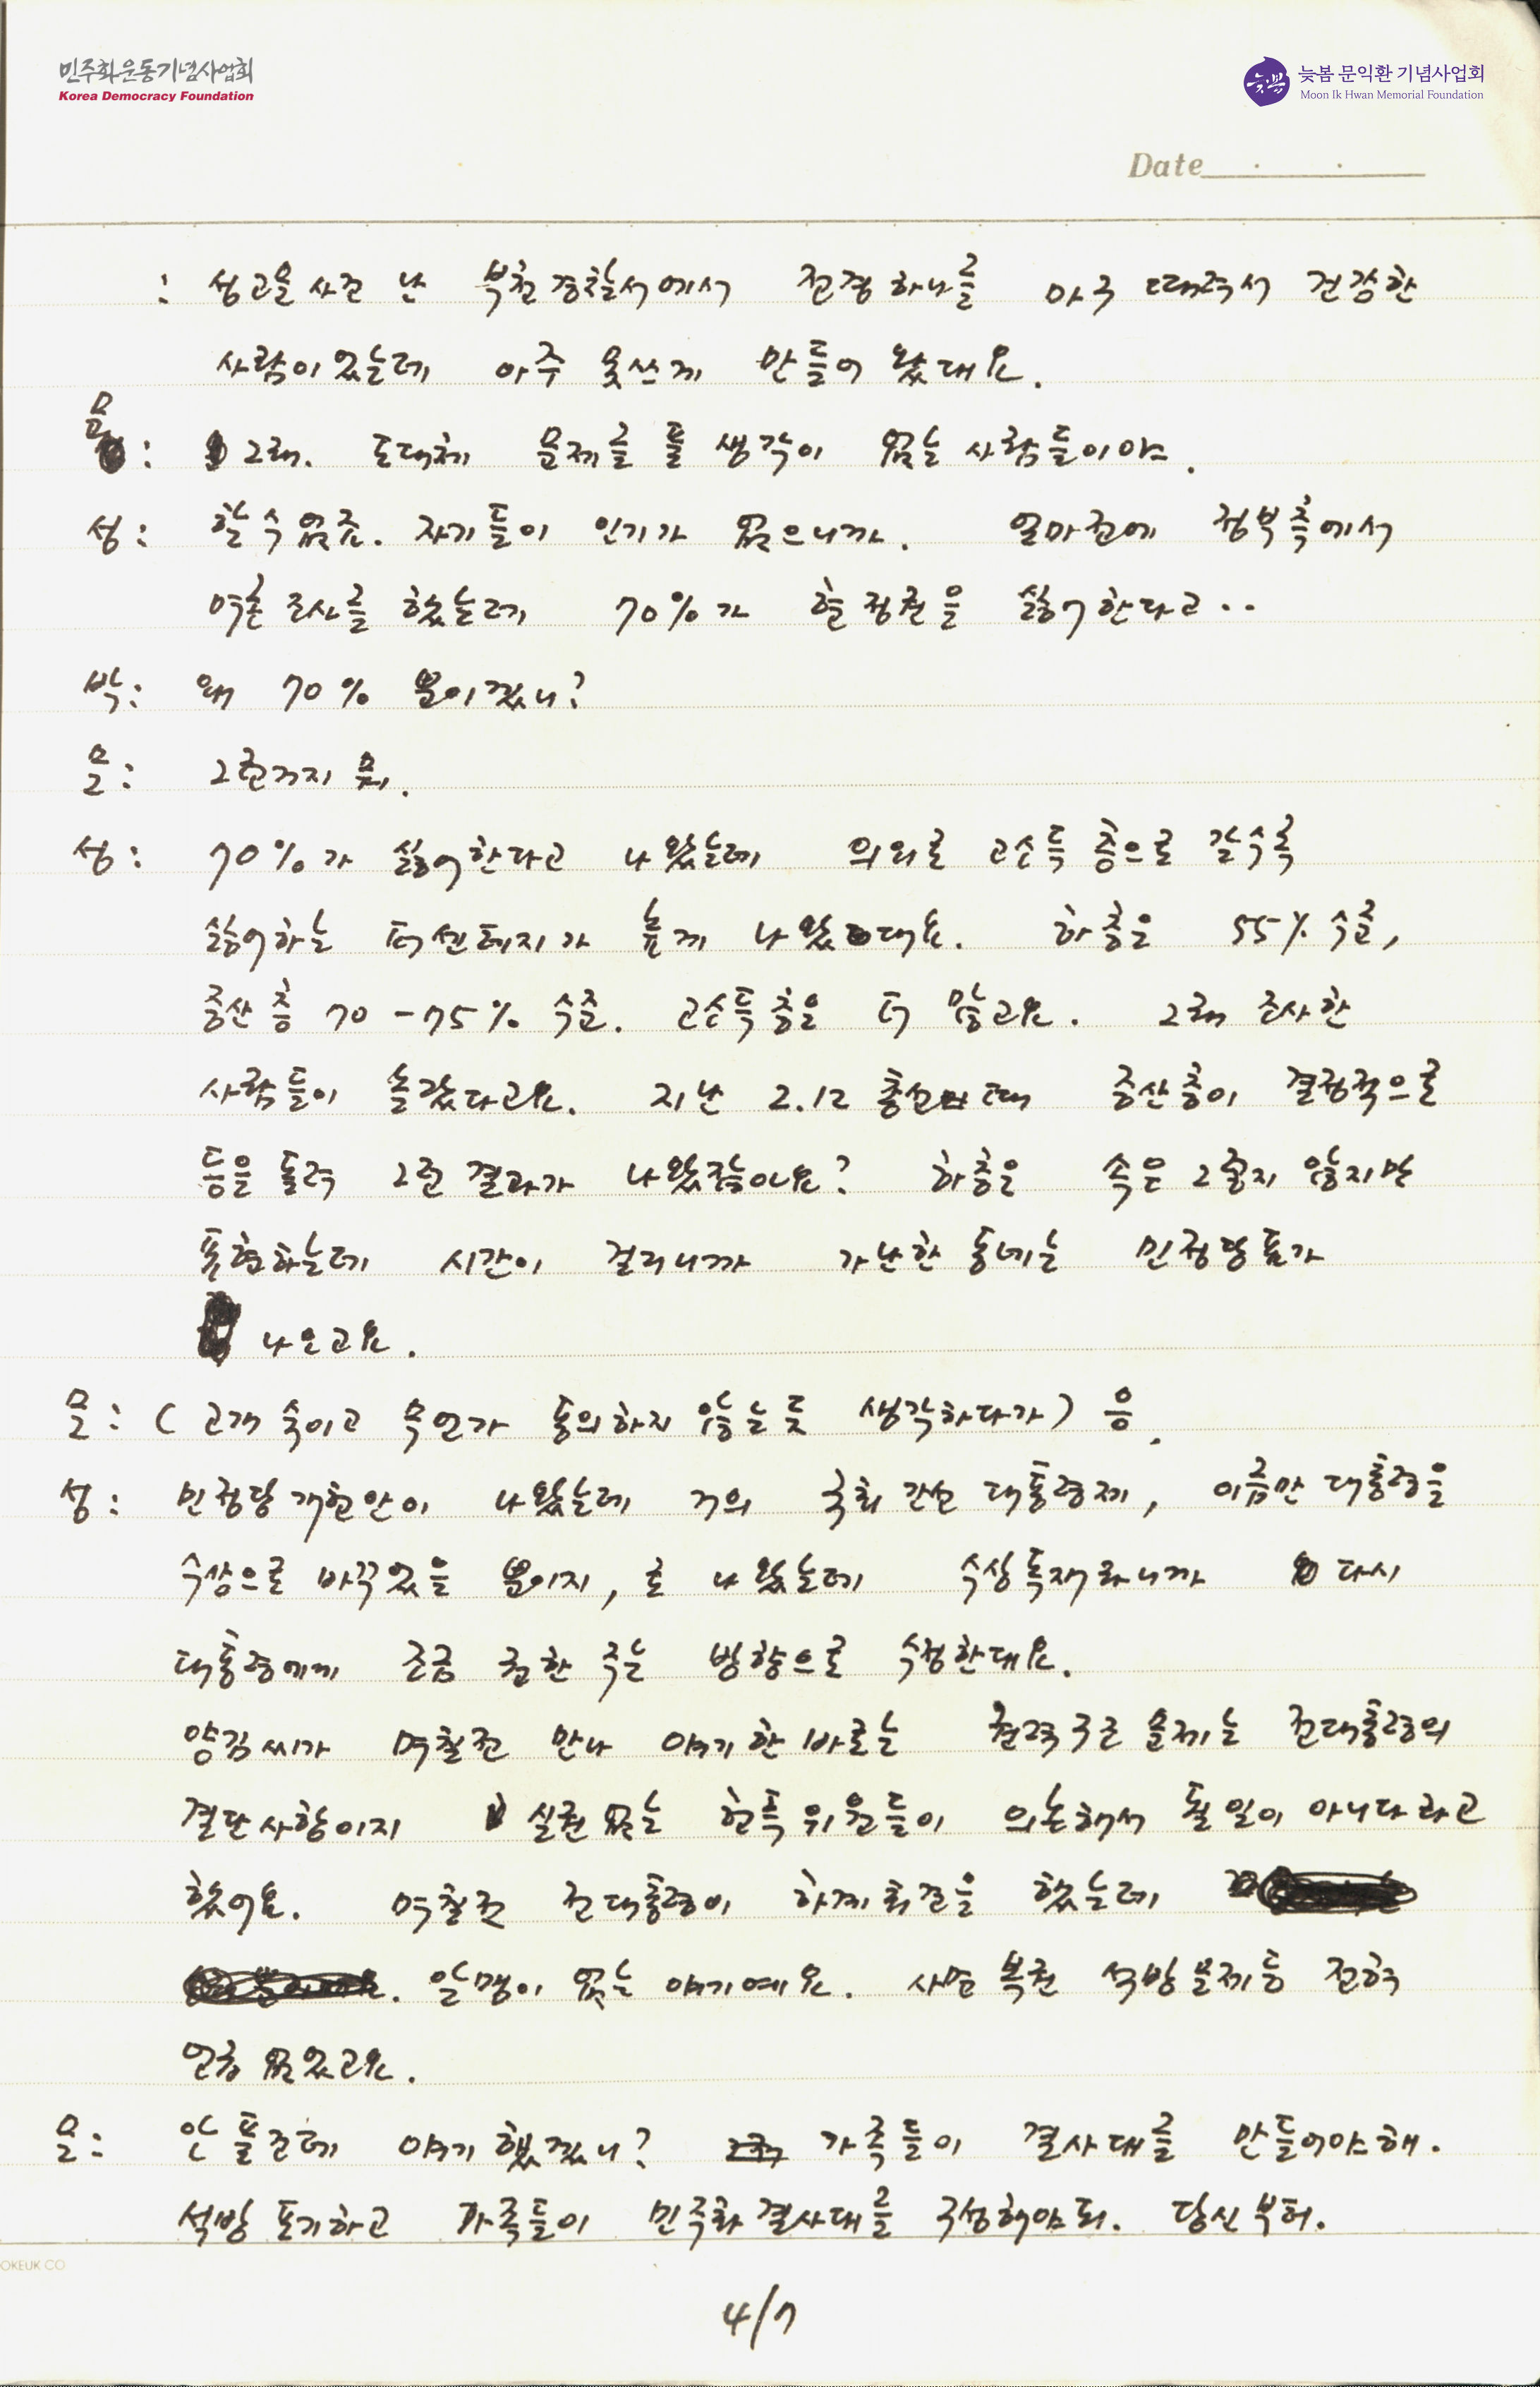 민주화운동기념사업회
Korea Democracy Foundation
늦봄 문익환 기념사업회
Moon Ik Hwan Memorial Foundation
Date
: 성고문 사건 난 부천경찰서에서 전경 하나를 마구 때려줘서 건강한
사람이었는데 아주 못쓰게 만들어 놨대요.
문: 그래. 도대체 문제를 풀 생각이 없는 사람들이야.
성: 할 수 없죠. 자기들이 인기가 없으니까. 얼마전에 정부측에서
여론조사를 했는데 70%가 현정권을 싫어한다고..
박: 왜 70% 뿐이겠니?
문: 그런거지 뭐.
성: 70%가 싫어한다고 나왔는데 의외로 고소득층으로 갈수록
싫어하는 퍼센테지가 높게 나왔대요. 하층은 55% 수준,
중산층 70-75% 수준. 고소득층은 더 많고요. 그래 조사한
사람들이 놀랐다고요. 지난 2.12 총선 때 중산층이 결정적으로
등을 돌려 그런 결과가 나왔잖아요? 하층은 속은 그렇지 않지만
표현하는데 시간이 걸리니까 가난한 동네는 민정당표가
나오고요.
문: (고개 숙이고 무언가 동의하지 않는듯 생각하다가) 음.
성: 민정당 개헌안이 나왔는데 거의 국회간선 대통령제, 이름만 대통령을
수상으로 바꾸었을 뿐이지, 로 나왔는데 수상독재라니까 다시
대통령에게 조금 권한 주는 방향으로 수정한대요.
양김씨가 며칠전 만나 얘기한 바로는 권력구조 문제는 전대통령의
결단사항이지 실권없는 헌특위원들이 의논해서 될 일이 아니다라고
했어요. 며칠전 전대통령이 하계회견을 했는데
알맹이 없는 얘기예요. 사면 복권 석방문제등 전혀
언급 없었고요.
문: 안 풀건데 얘기했겠니? 가족들이 결사대를 만들어야해.
석방 포기하고 가족들이 민주화 결사대를 구성해야되. 당신부터.
OKEUK CO
4/7